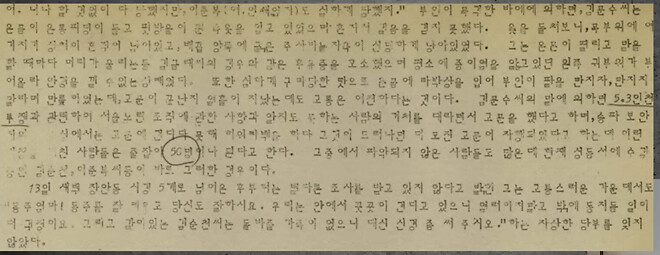 어. 나나 할 것없이 다 당했지만, 이춘복( )도 심하게 당했지." 부인이 목격한 바에 의하면, 김문수씨는
온몸이 온통 피멍이 들고 핏방울이 묻은 옷을 입고 있었으며 혼자서 걸음을 걷지 못했다. 옷을 들쳐보니, 목부위에 여
거지기 상처의 흔적이 남아있고, 팔꿈 양쪽에 굵은 주사바늘 자국이 선명하게 남아있었다. 그는 온몸이 떨리고 말을
할 때마다 머리가 울리는등 과 같은 후유증을 호소했으며 평소에 중이염을 앓고있던 왼쪽 귀부위가 부
어올라 안경을 낄 수없는 상태였다. 또한 심하게 구타당한 탓으로 온몸에 타박상을 입어 부인이 팔을 만지자, 만지지
말라며 만류하였는데, 고문이 끝난지 일흘이 지났는데도 고통은 여전하다는 것이다. 김문수씨의 말에 의하면 5.3인천
투쟁과 관련하여 서울노련 조직에 관한 사항과 알지도 못하는 사람의 거처를 대라면서 고문을 했다고 하며, 송파 보안
사의 심에서는 고문에 견디다 못해 허위자백을 하다 그것이 드러나면 더 모진 고문이 자행되었다고 하는데 이런
천 사람들은 줄잡아 50명이나 된다고 한다. 그중에서 파악되지 않은 사람들도 많은데 현재 성동서에 수감
중인 김순천, 이춘복씨등이 바로 그러한 경우이다.
13일 새벽 장안동 시경 5계로 넘어온 후부터는 별다른 조사를 받고 있지 않다고 밝힌 그는 고통스러운 가운데서도
"동주엄마! 동주를 잘 키우고 당신도 잘하시요. 우리는 안에서 꿋꿋이 견디고 있으니 염려하지말고 밖에 동지들 일이
더 걱정이요. 그리고 같이있는 김순천씨는 돌봐줄 가족이 없으니 대신 신경 좀 써 주시오."하는 자상한 당부를 잊지
않았다.